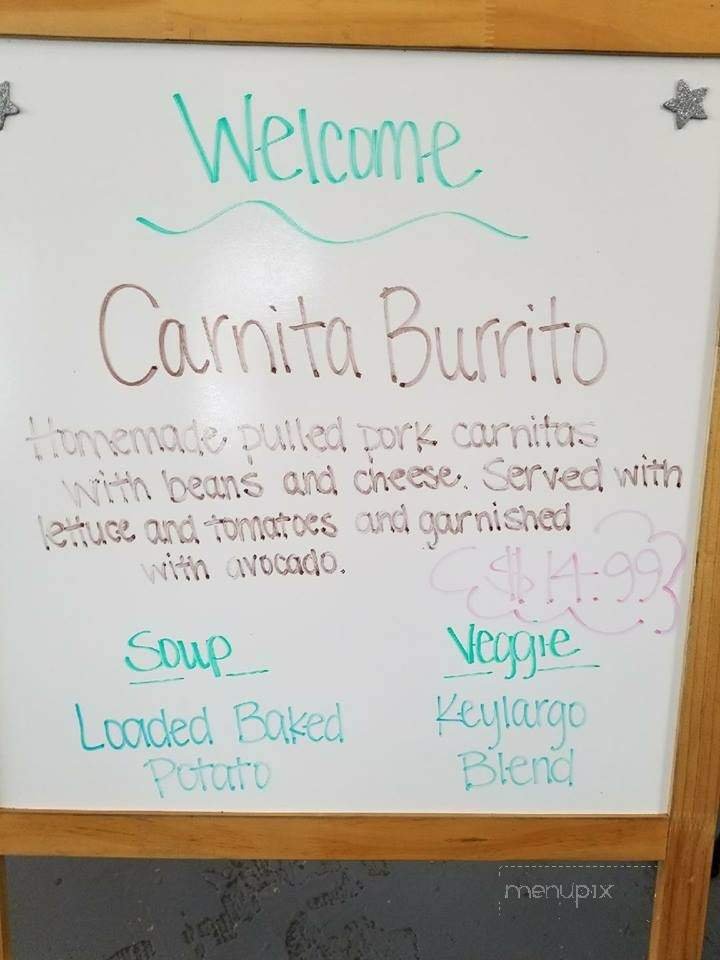 Welcome
Carnita Burrito
Homemade pulled pork carnitas
with beans and cheese. Served with
lettuce and tomatoes and garnished
with avocado.
$14.99
Soup
Loaded Baked
Potato
Veggie
Keylargo
Blend
menupix